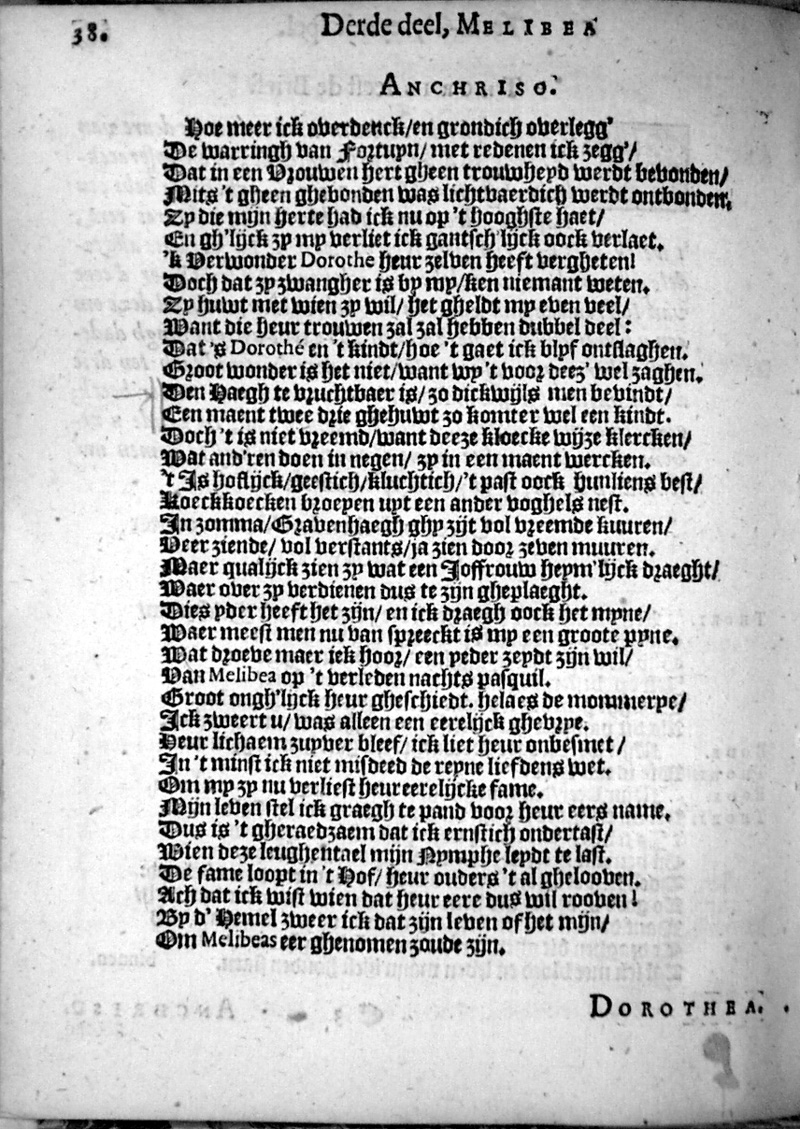 38.
Derde deel, MELIBEA
ANCHRISO.
Hoe meer ick overdenck/en grondich overlegg'
De warringh van Fortuyn/ met redenen ick zegg'/
Dat in een Vrouwen hert gheen trouwheyd werdt bevonden/
Mits 't gheen ghebonden was lichtvaerdich werdt ontbonden.
Zy die mijn herte had ick nu op 't hooghste haet/
En gh'lijck zy my verliet ick gantsch'lijck oock verlaet.
'k Verwonder Dorothe heur zelven heeft vergheten!
Doch dat zy zwangher is by my/ken niemant weten.
Zy huwt met wien zy wil/ het gheldt my even veel/
Want die heur trouwen zal zal hebben dubbel deel:
Dat 's Dorothé en 't kindt/hoe 't gaet ick blyf ontslaghen.
Groot wonder is het niet/want wy 't voor deez' wel zaghen.
Den Haegh te vruchtbaer is/ zo dickwyls men bevindt/
Een maent twee drie ghehuwt zo komter wel een kindt.
Doch 't is niet vreemd/want deeze kloecke wijze klercken/
Wat and'ren doen in negen/ zy in een maent wercken.
't Is hoflijck/geestich/kluchtich/'t past oock hunliens best/
Koeckkoecken broepen uyt een ander voghels nest.
In zomma/Gravenhaegh ghy zijt vol vreemde kuuren/
Veer ziende/ vol verstants/ja zien door zeven muuren.
Maer qualijck zien zy wat een Joffrouw heym'lijck draeght/
Waer over zy verdienen dus te zijn gheplaeght.
Dies yder heeft het zijn/ en ick draegh oock het myne/
Waer meest men nu van spreeckt is my een groote pyne.
Wat droeve maer ick hoor/ een yeder zeydt zijn wil/
Van Melibea op 't verleden nachts pasquil.
Groot ongh'lijck heur gheschiedt. helaes de mommerye/
Ick zweert u/ was alleen een eerelijck ghevrye.
Heur lichaem zuyver bleef/ ick liet heur onbesmet/
In 't minst ick niet misdeed de reyne liefdens wet.
Om my zy nu verliest heur eerelijcke fame.
Mijn leven stel ick graegh te pand voor heur eers name.
Dus is 't gheraedzaem dat ick ernstich ondertast/
Wien deze leughentael mijn Nymphe leydt te last.
De fame loopt in 't Hof/ heur ouders 't al ghelooven.
Ach dat ick wist wien dat heur eere dus wil rooven!
By d' Hemel zweer ick dat zijn leven of het mijn/
Om Melibeas eer ghenomen zoude zijn.
DOROTHEA.